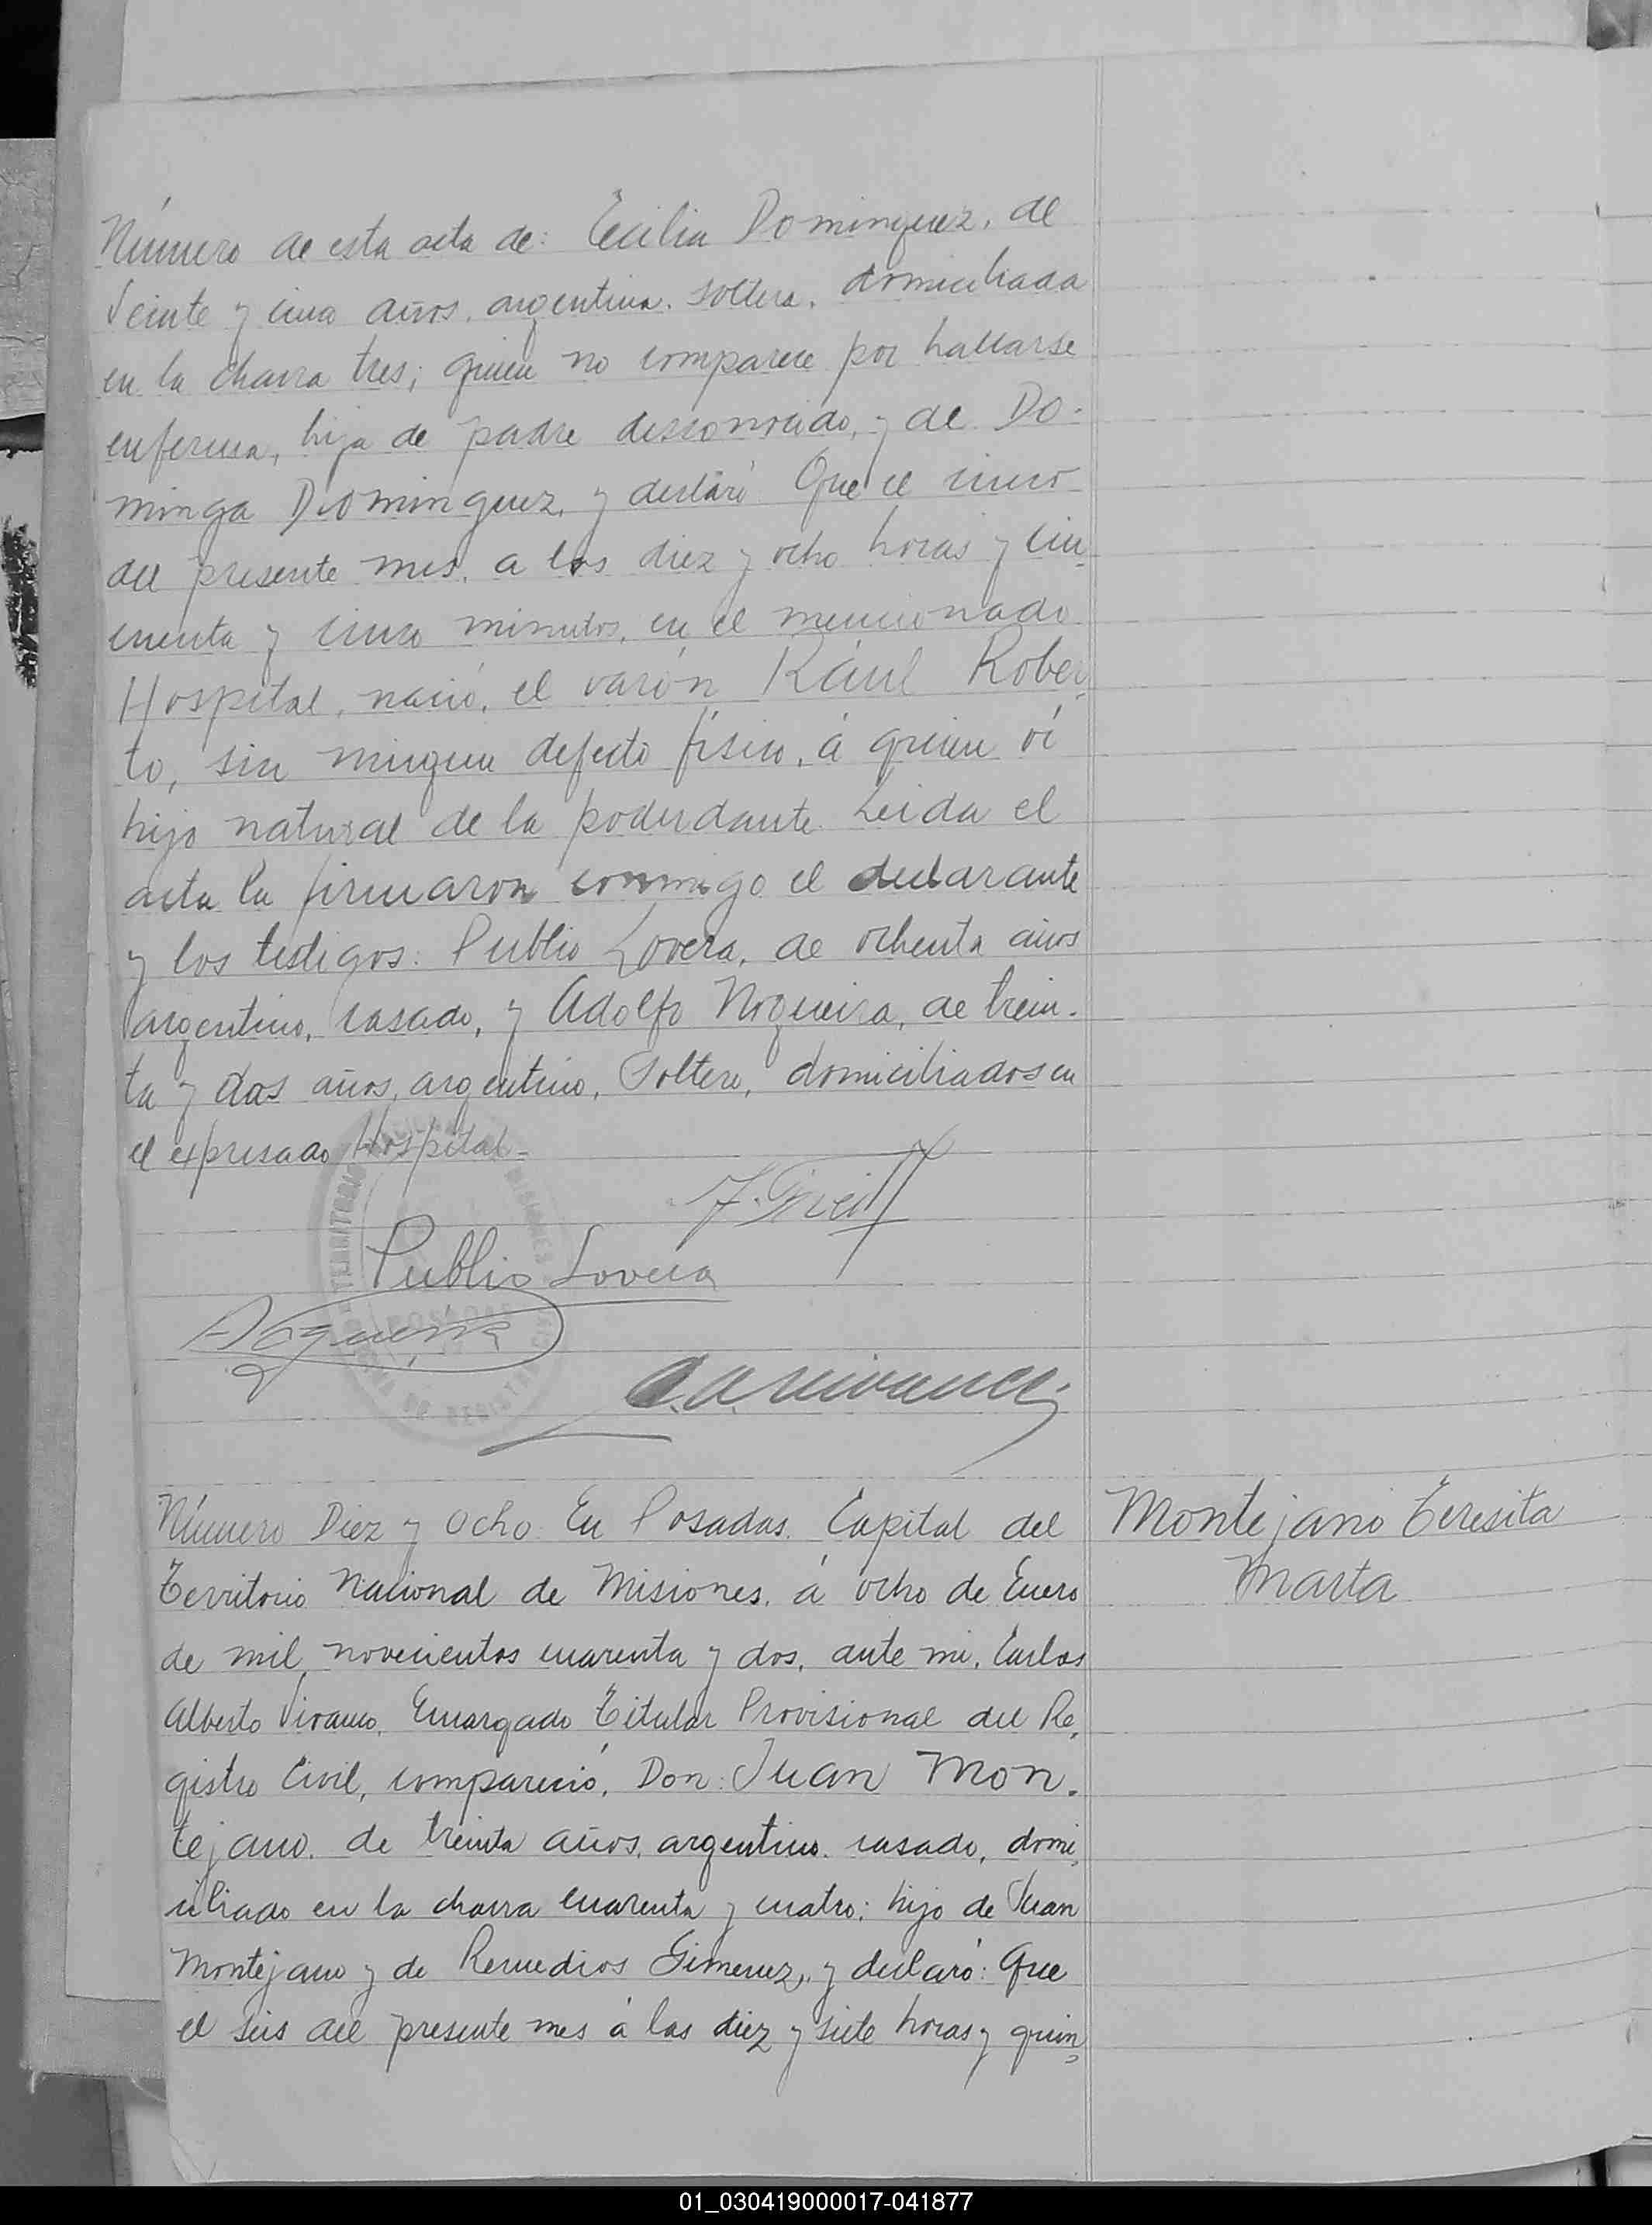 Número de esta acta de: Cecilia Dominguez, de
veinte y cinco años, argentina, soltera, domiciliada
en la chacra tres; quien no comparece por hallarse
enferma, hija de padre desconocido, y de Do-
minga Dominguez, y declaró: Que el cinco
del presente mes, a las diez y ocho horas y cin-
cuenta y cinco minutos, en el mencionado
Hospital, nació, el varón Rául Rober-
to, sin ningun defecto físico, á quien ví
hijo natural de la poderdante. Leida el
acta la firmaron conmigo el declarante
y los testigos: Publio Lovera, de ochenta años
argentino, casado, y Adolfo Nogueira, de trein-
ta y dos años, argentino, Soltero, domiciliados en
el expresado Hospital=
Publio Lovera
Número Diez y Ocho: En Posadas, Capital del
Montejano Teresita
Territorio Nacional de Misiones, á ocho de Enero
Marta
de mil novecientos cuarenta y dos, ante mi, Carlos
Alberto Vivanco, Encargado Titular Provisional del Re-
gistro Civil, compareció, Don: Juan Mon-
tejano, de treinta años, argentino, casado, domi-
ciliado en la chacra cuarenta y cuatro; hijo de Juan
Montejano y de Remedios Gimenez, y declaró: Que
el seis del presente mes á las diez y siete horas y quin-
01_030419000017-041877